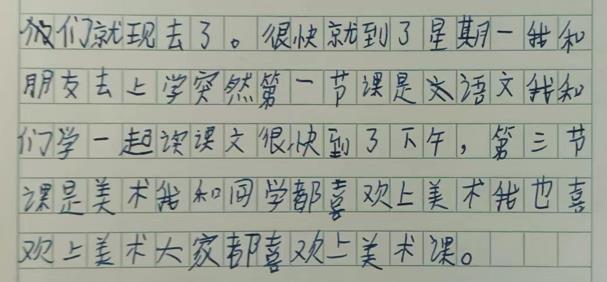 他们就现去了。很快就到了星期一我和
朋友去上学突然第一节课是语文我和
们学一起读课文很快到了下午，第三节
课是美术我和同学都喜欢上美术我也喜
欢上美术大家都喜欢上美术课。